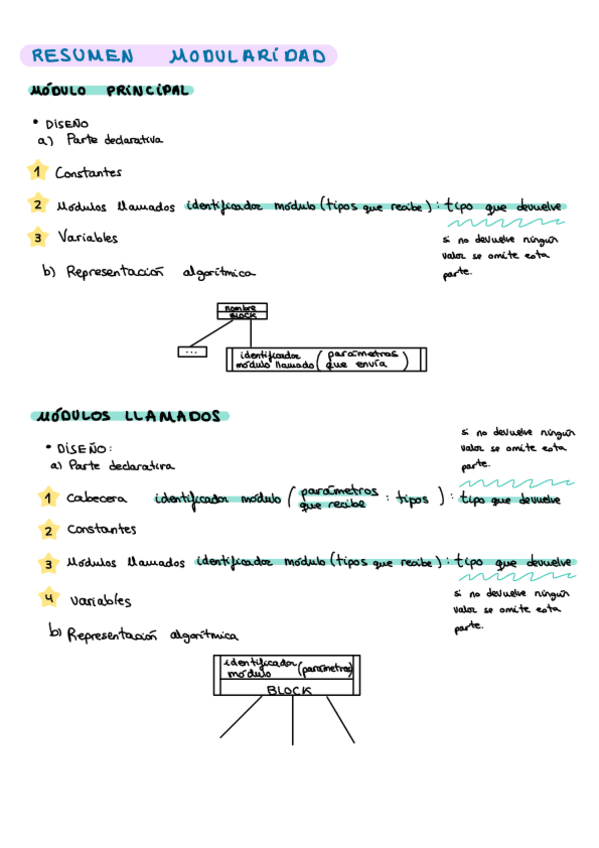 RESUMEN MODULARIDAD
MÓDULO PRINCIPAL
• DISEÑO
a) Parte declarativa
1 Constantes
2 Módulos llamados identificador módulo (tipos que recibe) : tipo que devuelve
3 Variables
si no devuelve ningún
valor se omite esta
parte.
b) Representación algorítmica
nombre
BLOCK
...
identificador
módulo llamado ( parámetros
que envía )
MÓDULOS LLAMADOS
si no devuelve ningún
valor se omite esta
parte.
• DISEÑO:
a) Parte declarativa
1 Cabecera identificador módulo ( parámetros
que recibe : tipos ) : tipo que devuelve
2 Constantes
3 Módulos llamados identificador módulo (tipos que recibe) : tipo que devuelve
4 variables
si no devuelve ningún
valor se omite esta
parte.
b) Representación algorítmica
identificador
módulo (parámetros)
BLOCK